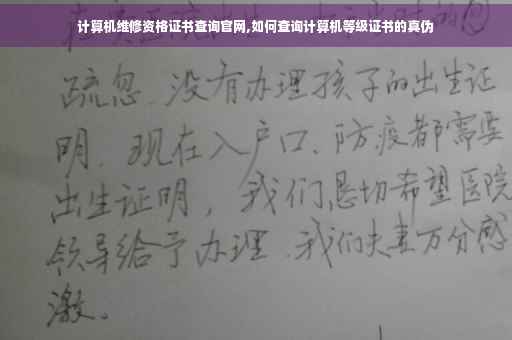 计算机维修资格证书查询官网,如何查询计算机等级证书的真伪
疏忽、没有办理孩子的出生证
明、现在入户口、防疫都需要
出生证明，我们恳切希望医院
领导给予办理、我们夫妻万分感
激。